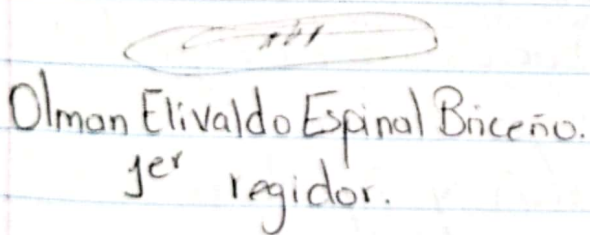 Olman Elivaldo Espinal Briceño.
1er regidor.